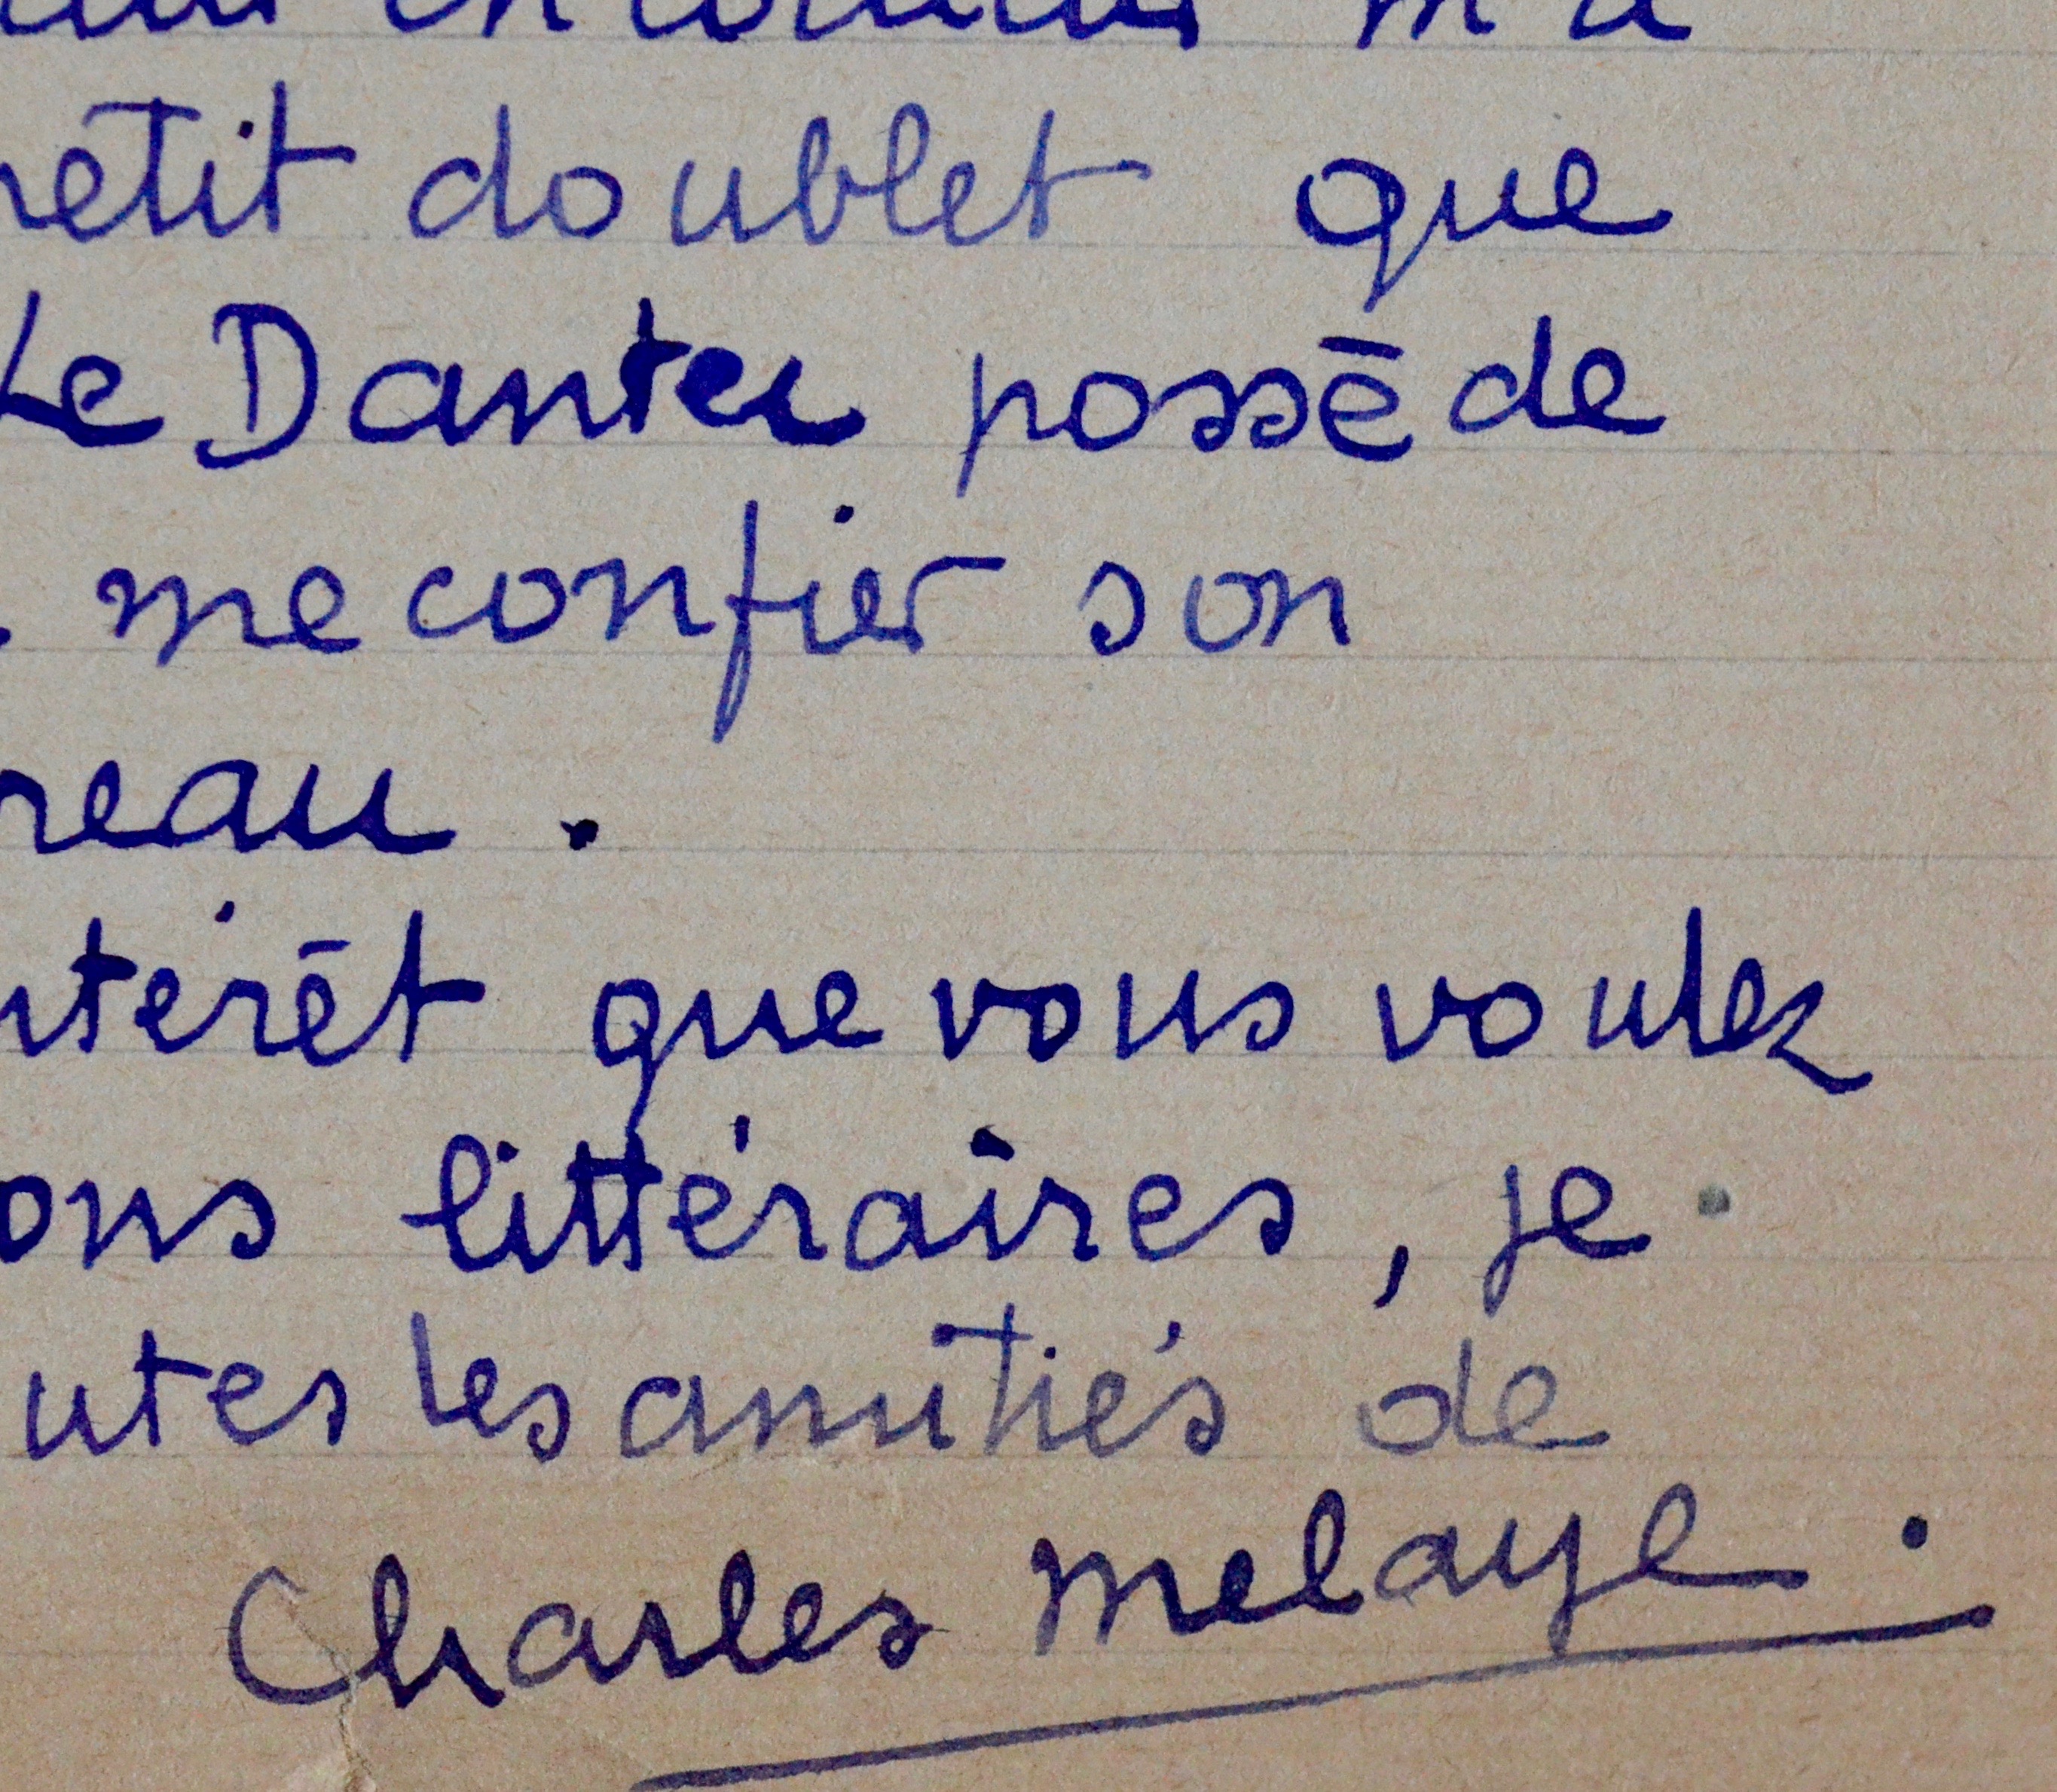 m'a
petit doublet que
Le Dantec possède
me confier son
reau.
ntérêt que vous voulez
ons littéraires, je
utes les amitiés de
Charles Melaye.